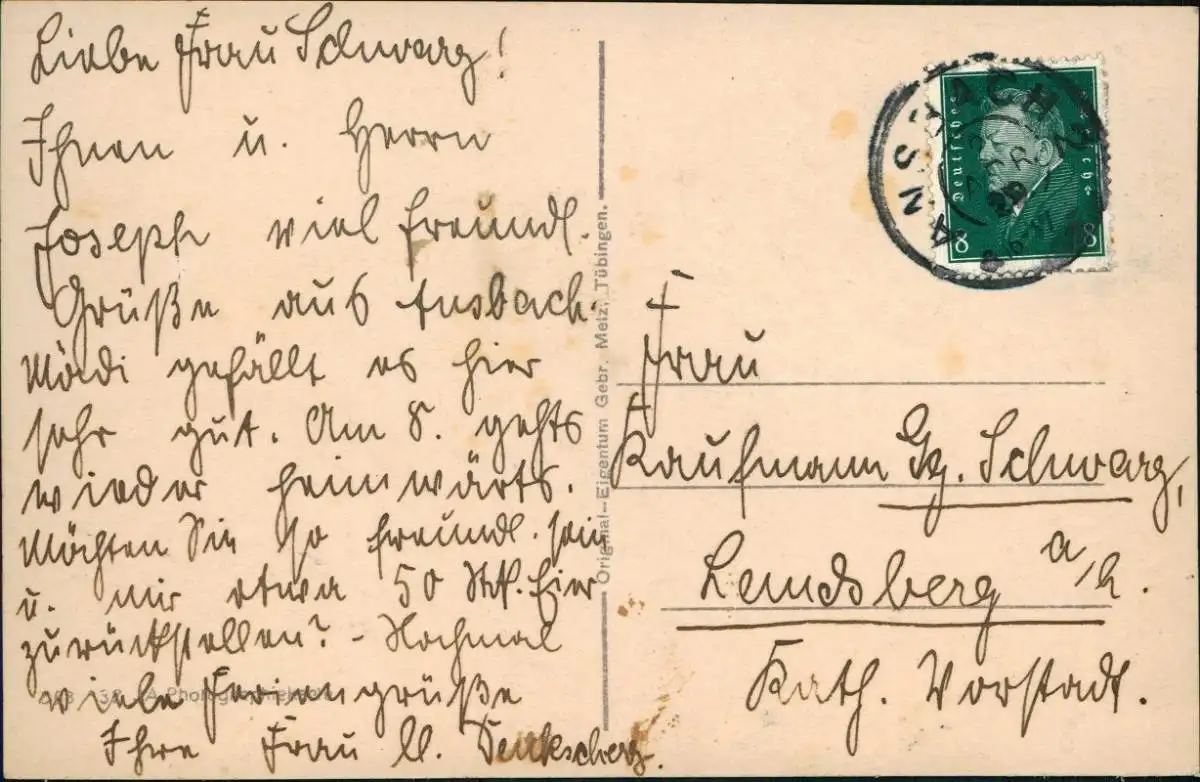 Liebe Frau Schwarz!
Ihnen u. Herrn
Joseph viel freundl.
Grüße aus Ansbach.
Mädi gefällt es hier
sehr gut. Am 8. gehts
wieder heimwärts.
Möchten Sie so freundl. sein
u. mir etwa 50 Stk. Eier
zurückstellen? - Nochmal
viele Feriengrüße
Ihre Frau M.
Original-Eigentum Gebr. Metz, Tübingen.
ANSBACH 2
29
Deutsches Reich
8 8
Frau
Kaufmann Gg. Schwarz,
Landsberg a/L.
Kath. Vorstadt.